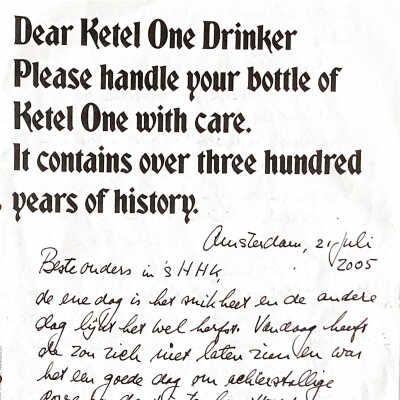 Dear Ketel One Drinker
Please handle your bottle of
Ketel One with care.
It contains over three hundred
years of history.
Amsterdam, 21 juli
2005
Beste ouders in 's HHK,
de ene dag is het snikheet en de andere
dag lijkt het wel herfst. Vandaag heeft
de zon zich niet laten zien en was
het een goede dag om achterstallige